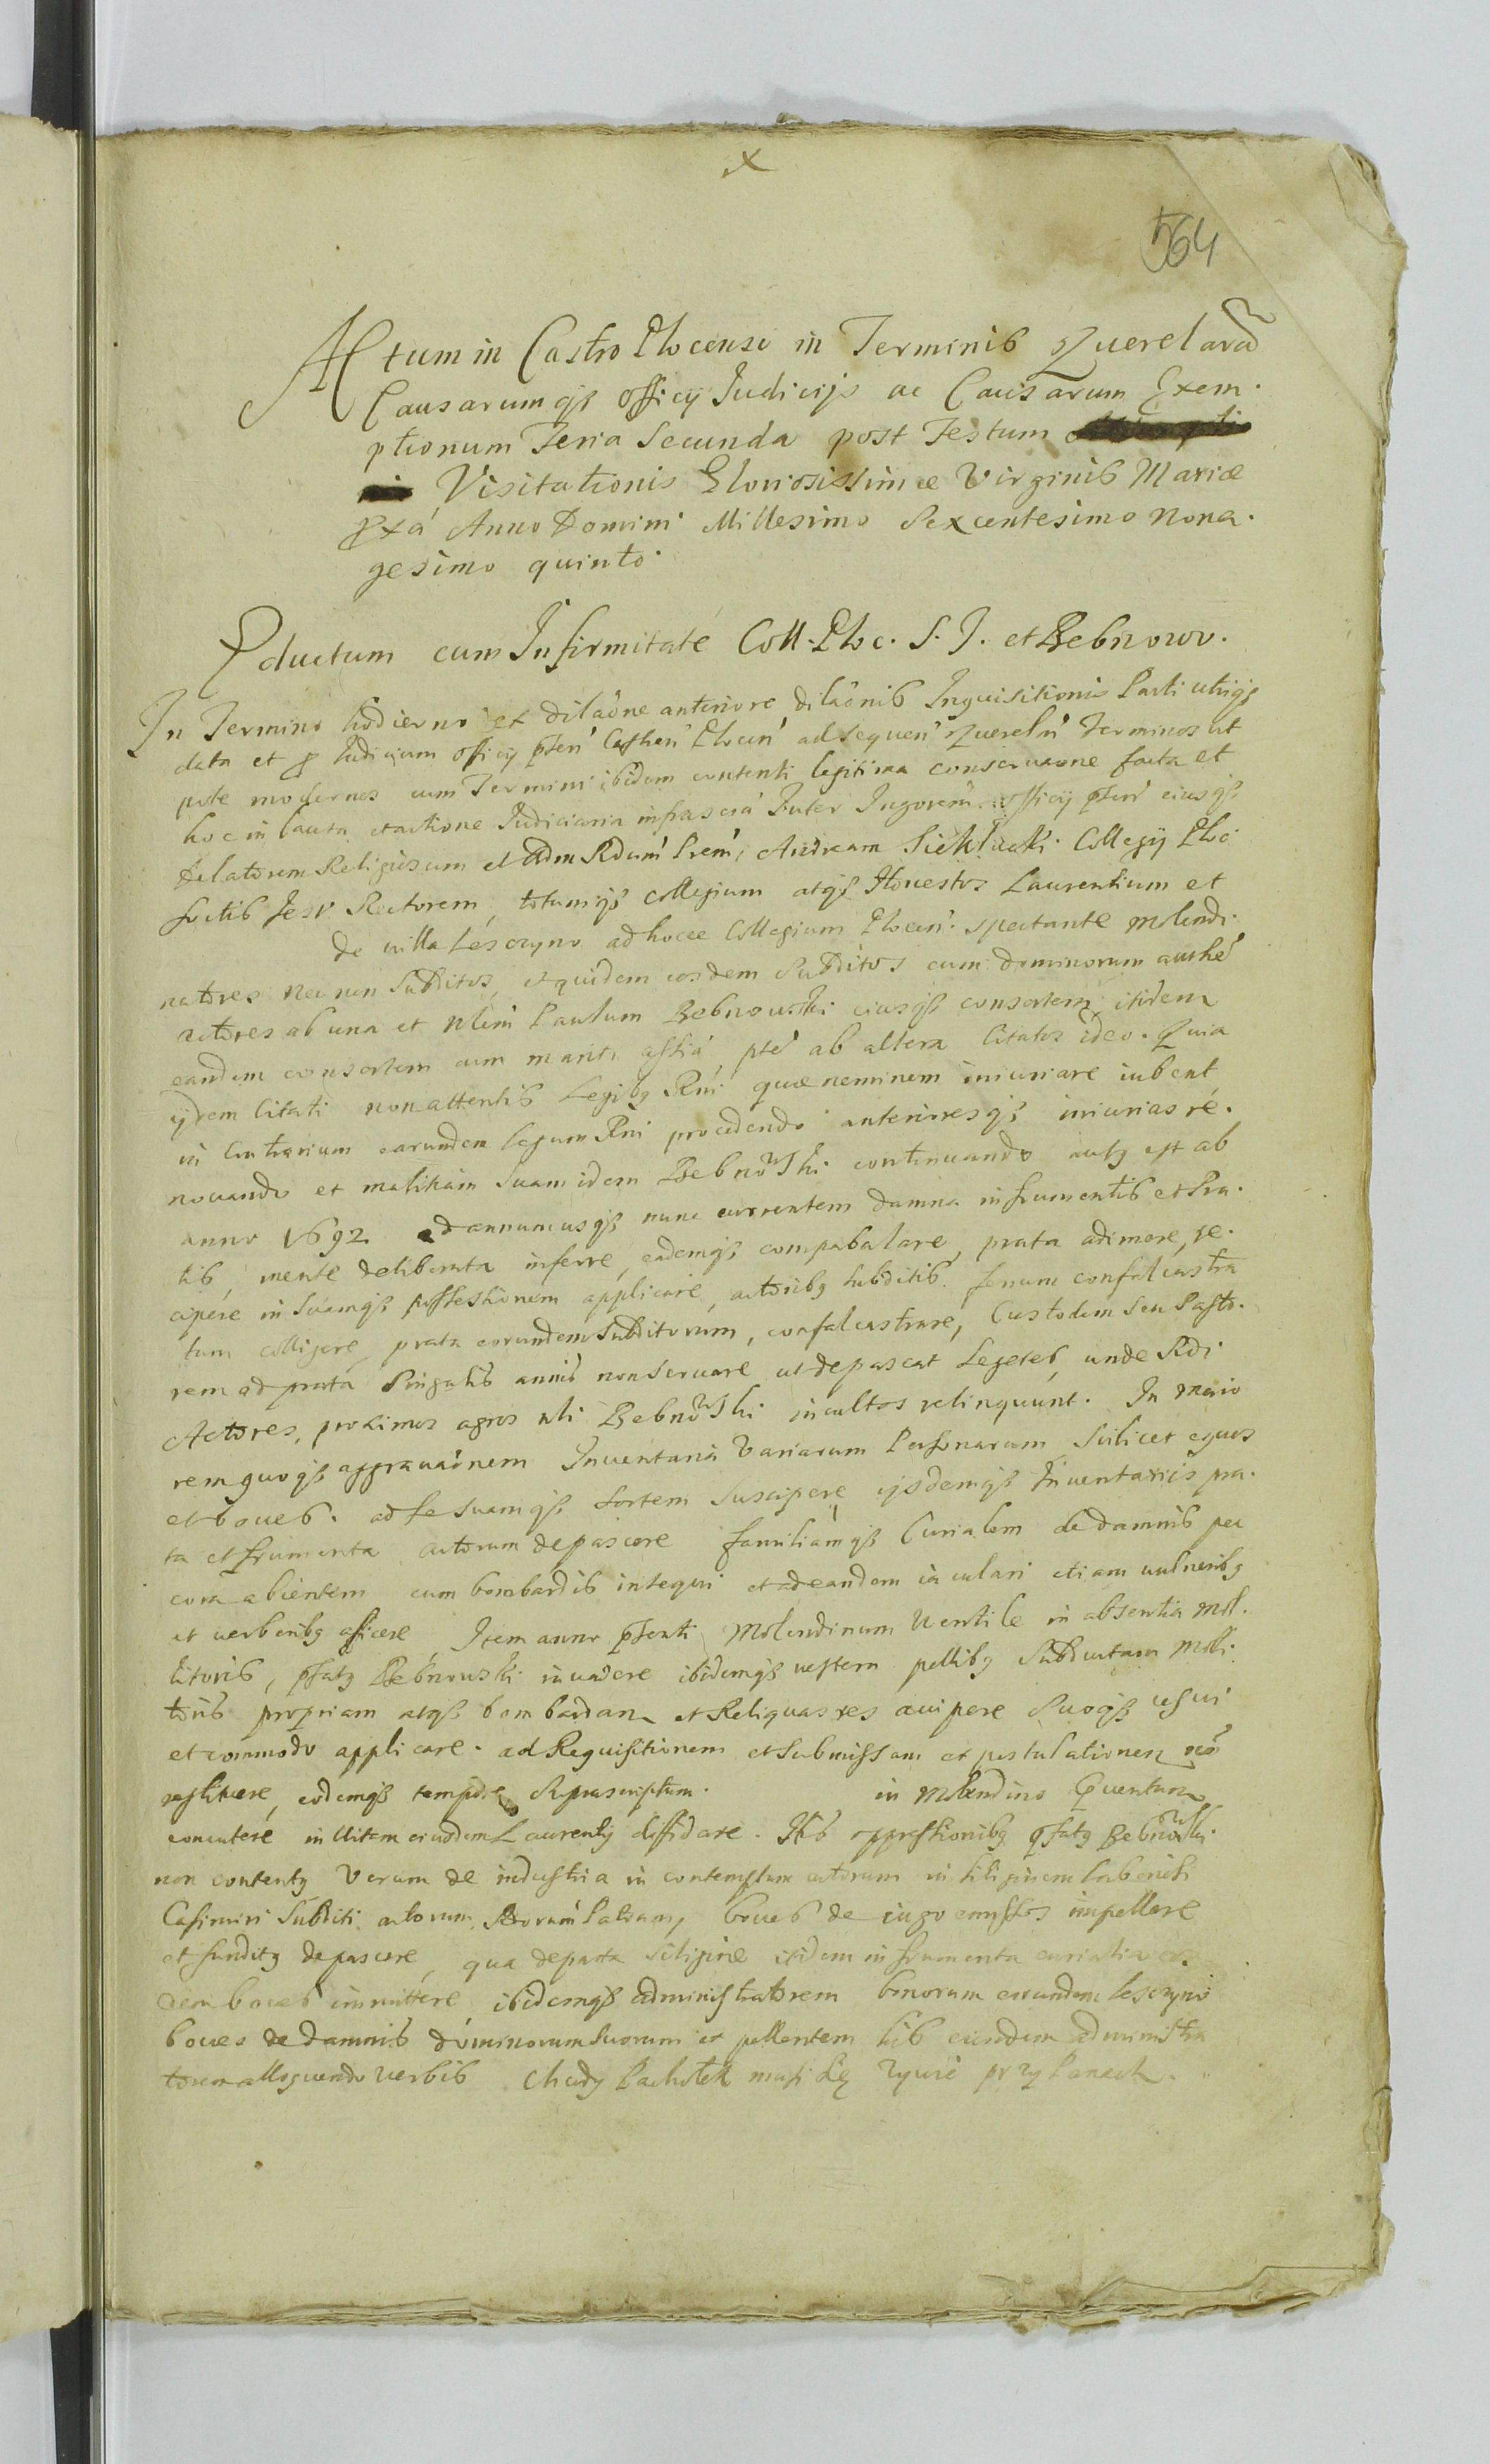 x
564
Actum in Castro Plocensi in Terminis Querelarū
Causarumqȝ officij Judicijs ac Causarum Exem-
ptionum Feria Secunda post Festum
Visitationis Gloriosissimæ Virginis Mariæ
pxá Anno Domini Millesimo Sexcentesimo Nona-
gesimo quinto.
Eductum cum Infirmitate Coll. Ploc. S. J. et Bebnowo.
In Termino hodierno ex dilaōne anteriore dilaōnis Inquisitionis Parti utriqȝ
data et p Judicium officij pñten Castren Plocen ad sequen Quereln Terminos ut
pote modernos cum Termini ibidem contenti legitima conseruaōne facta et
hoc in causa et actione Judiciaria infrascrá Inter officij pñten eiusqȝ
delatorem Religiosum et Adm Rdum Prem, Andream Sieklucki Collegij Ploc
sctis Jesu Rectorem, totumqȝ Collegium atqȝ Honestos Laurentium et
de villa Lesczyno ad hocce Collegium Plocen. spectante Molendi-
natores nec non Subditos, et quidem eosdem Subditos cum dominorum authē
actores ab una et Nlem Paulum Bebnowski eiusqȝ consortem itidem
eandem consortem cum mariti assiá pte ab altera Citatos ideo. Quia
ijdem Citati non attentis Legibȝ Rni quæ neminem iniuriare iubent
in Contrarium earundem legum Rni procedendo anterioresqȝ iniurias re-
nouando et malitiam Suam idem Bebnowski continuando ausȝ est ab
anno 1692 ad annumusqȝ nunc currentem damna in frumentis et Pra-
tis, mente deliberata inferre, eademqȝ compabulare, prata adimere, re-
cipere in Suamqȝ possessionem applicare, actoribȝ Subditis fenum confalcastra
tum colligere, prata eorundem Subditorum, confalcastrare, Custodem seu Pasto-
rem ad prata Singulis annis non Seruare ut depascat Segetes, unde Rdi
Actores, proximos agros nli Bebnowski incultos relinquunt. In maio
remquoqȝ aggrauaōnem Inuentaria Variarum Personarum Scilicet equos
et boues. ad se Suamqȝ Sortem Suscipere ijsdemqȝ Inuentarijs pra-
ta et frumenta actorum depascere familiamqȝ Curialem de damnis pec
cora abientem cum bombardis insequi et ad eandem iaculari etiam uulneribȝ
et uerberibȝ afficere Item anno pñsenti Molendinum Ventile in absentia Mol-
litoris, pfatȝ Bebnowski inuadere ibidemqȝ uestem pellibȝ Subductam Moli-
toris propriam atqȝ bombardam et Reliquas res accipere Suoqȝ usui
et commodo applicare. ad Requisitionem et Submissam et postulationem nō
restituere, eodemqȝ tempore Suprascriptum. in Molendino
concutere in Vitam eiusdem Laurentij diffidare. His oppressionibȝ pfatȝ Bebnowski
non contentȝ Verum de industria in contemptum actorum in siliginem laboriosi
Casimiri Subditi actorum, Rdorum Patrum, boues de iugo emissos impellere
et funditȝ depascere, qua depasta siligine itidem in frumenta curialia eos-
dem boues immittere ibidemqȝ administratorem bonorum eorundem Lesczyno
boues de damnis dominorum suorum ex pellentem his eiusdem administra
torem alloquendo verbis Chudy Pachołek musi Się żywić przy Panach.